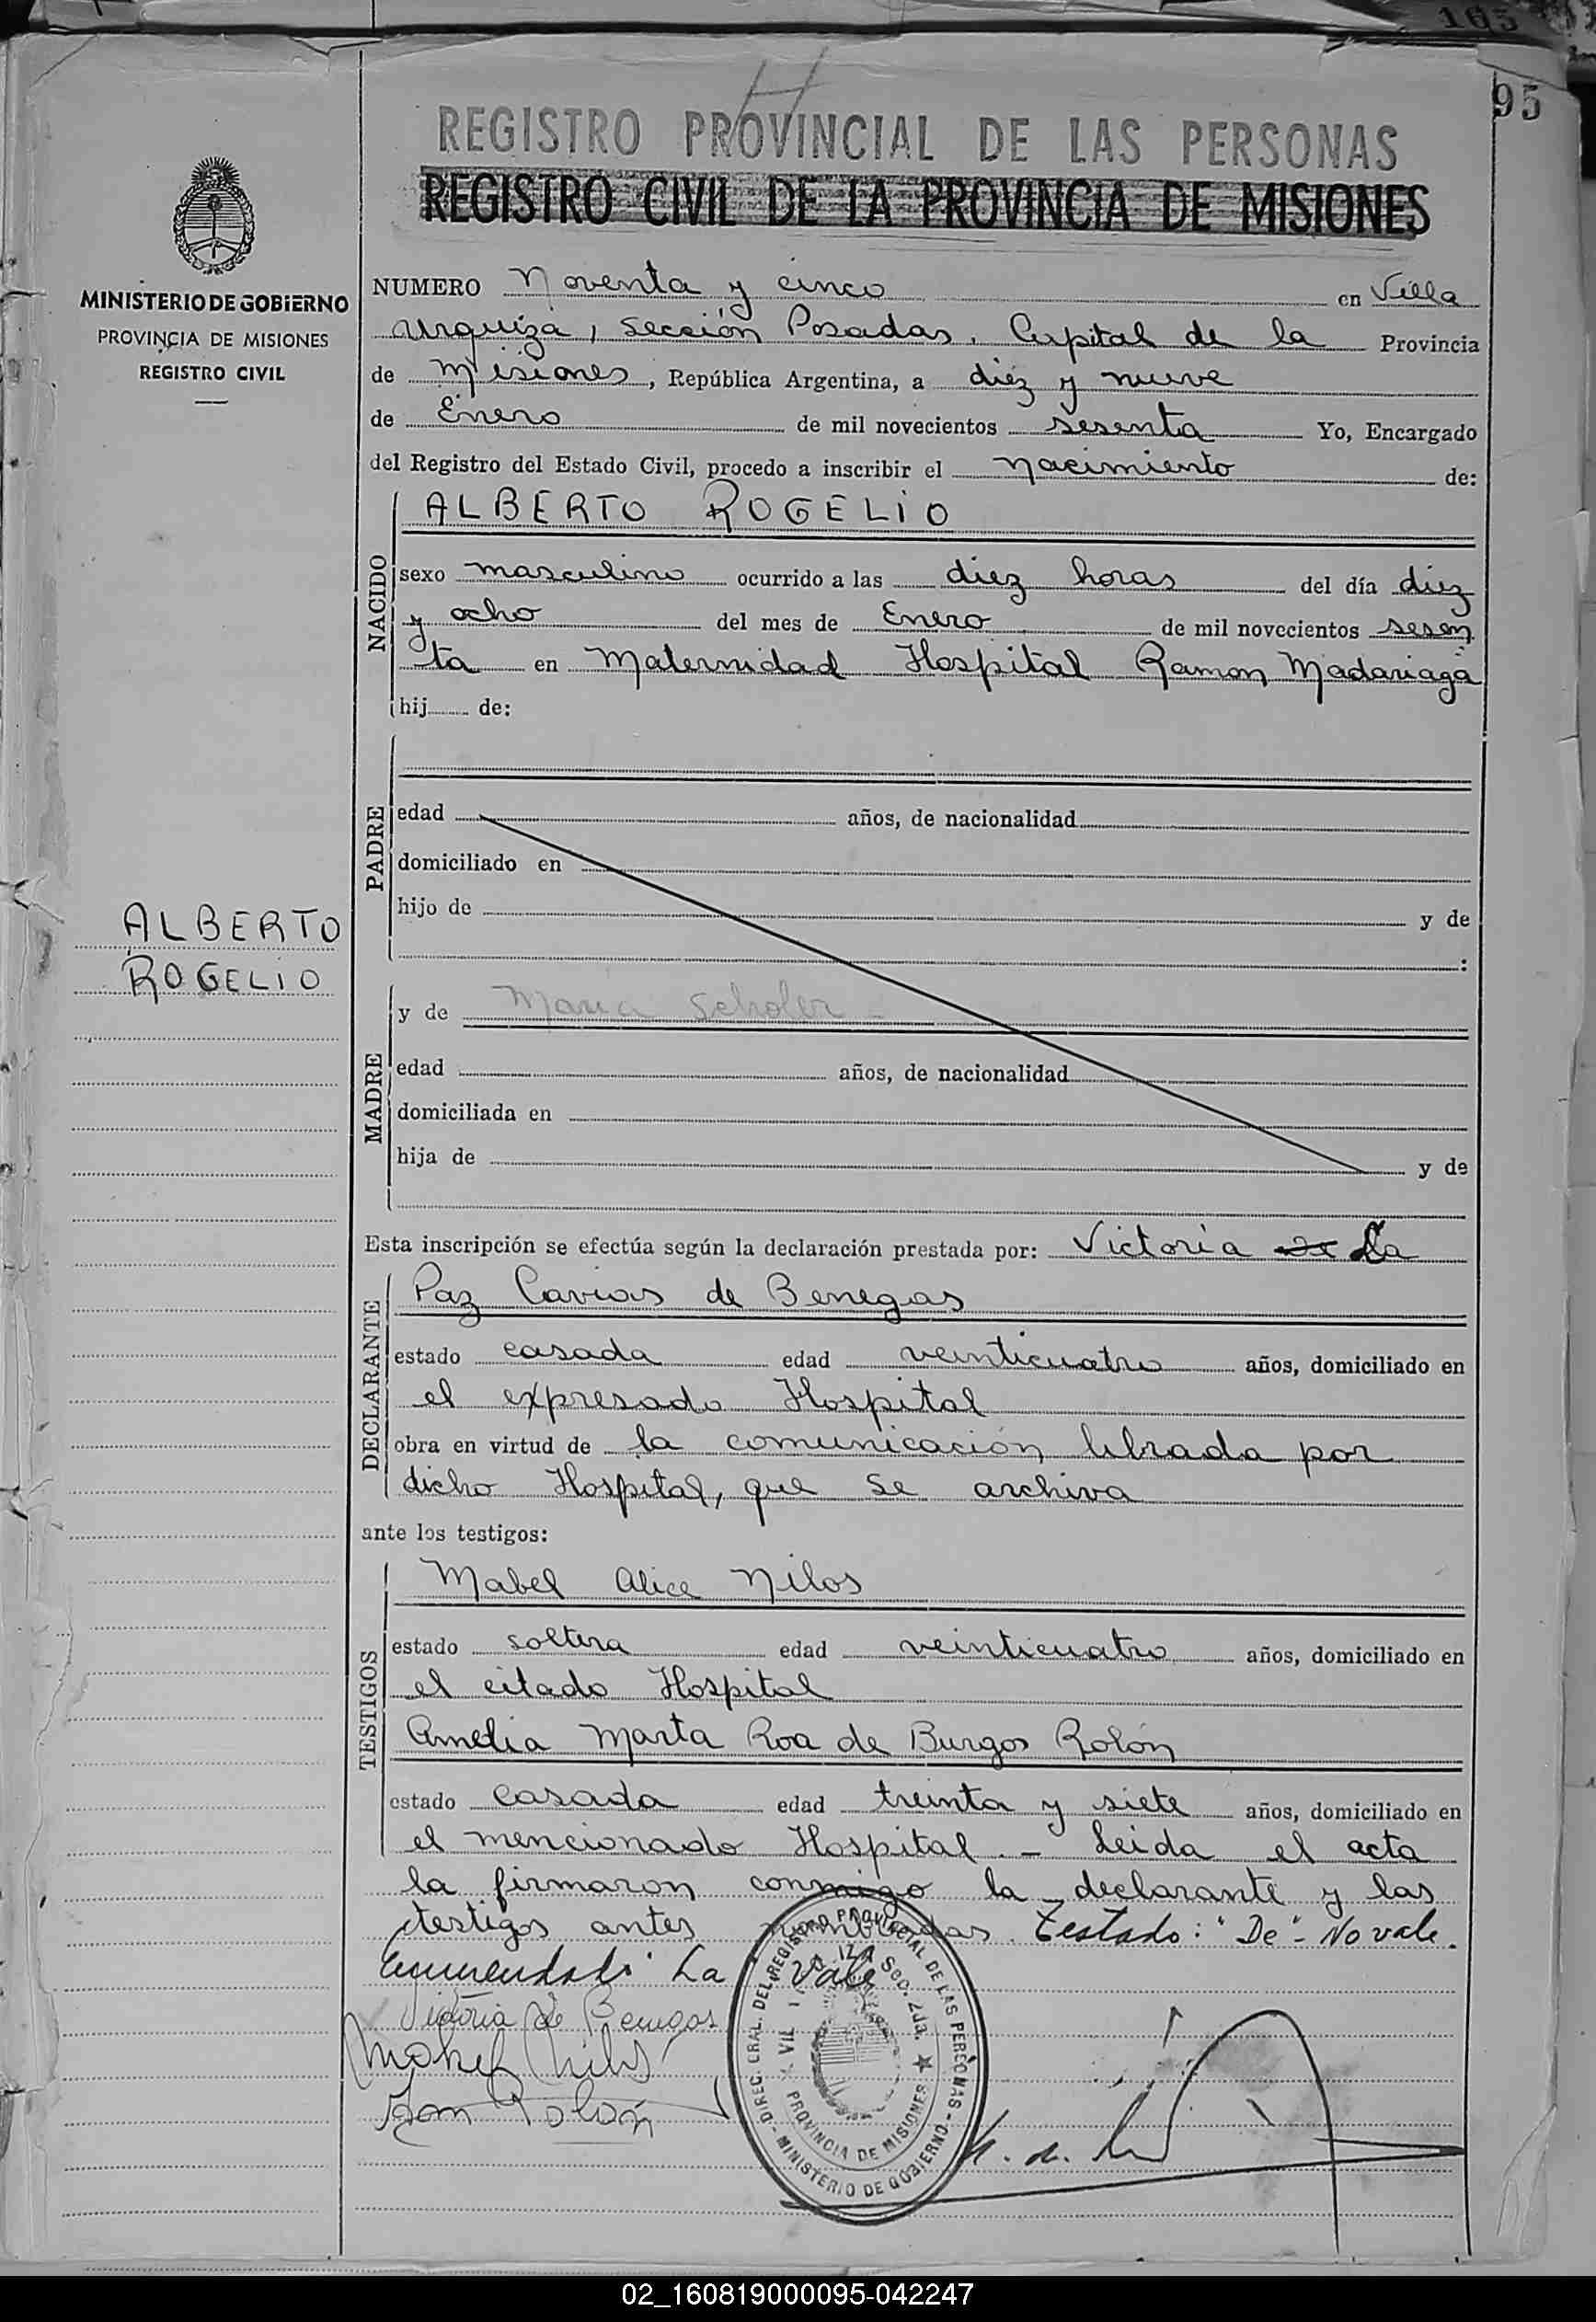 105
95
REGISTRO PROVINCIAL DE LAS PERSONAS
REGISTRO CIVIL DE LA PROVINCIA DE MISIONES
MINISTERIO DE GOBIERNO
PROVINCIA DE MISIONES
REGISTRO CIVIL
NUMERO Noventa y cinco en Villa
Urquiza, Sección Posadas, Capital de la Provincia
de Misiones, República Argentina, a diez y nueve
de Enero de mil novecientos sesenta Yo, Encargado
del Registro del Estado Civil, procedo a inscribir el nacimiento de:
NACIDO
ALBERTO ROGELIO
sexo masculino ocurrido a las diez horas del día diez
y ocho del mes de Enero de mil novecientos sesen
ta en Maternidad Hospital Ramon Madariaga
hij de:
PADRE
edad años, de nacionalidad
domiciliado en
hijo de y de
:
ALBERTO
ROGELIO
MADRE
y de Maria Scholer
edad años, de nacionalidad
domiciliada en
hija de y de
Esta inscripción se efectúa según la declaración prestada por: Victoria de La
DECLARANTE
Paz de Benegas
estado casada edad veinticuatro años, domiciliado en
el expresado Hospital
obra en virtud de la comunicación librada por
dicho Hospital, que se archiva
ante los testigos:
TESTIGOS
Mabel Alice Nilos
estado soltera edad veinticuatro años, domiciliado en
el citado Hospital
Amelia Marta Roa de Burgos Rolón
estado casada edad treinta y siete años, domiciliado en
el mencionado Hospital.- Leida el acta
la firmaron conmigo la declarante y las
testigos antes nombradas. Testado: "De"- No vale.
Enmendado: La Vale
Victoria de Benegas
Rolón
DIREC. GRAL. DEL REGISTRO PROVINCIAL DE LAS PERSONAS - MINISTERIO DE GOBIERNO -
Sec. 2da. ★ PROVINCIA DE MISIONES
02_160819000095-042247